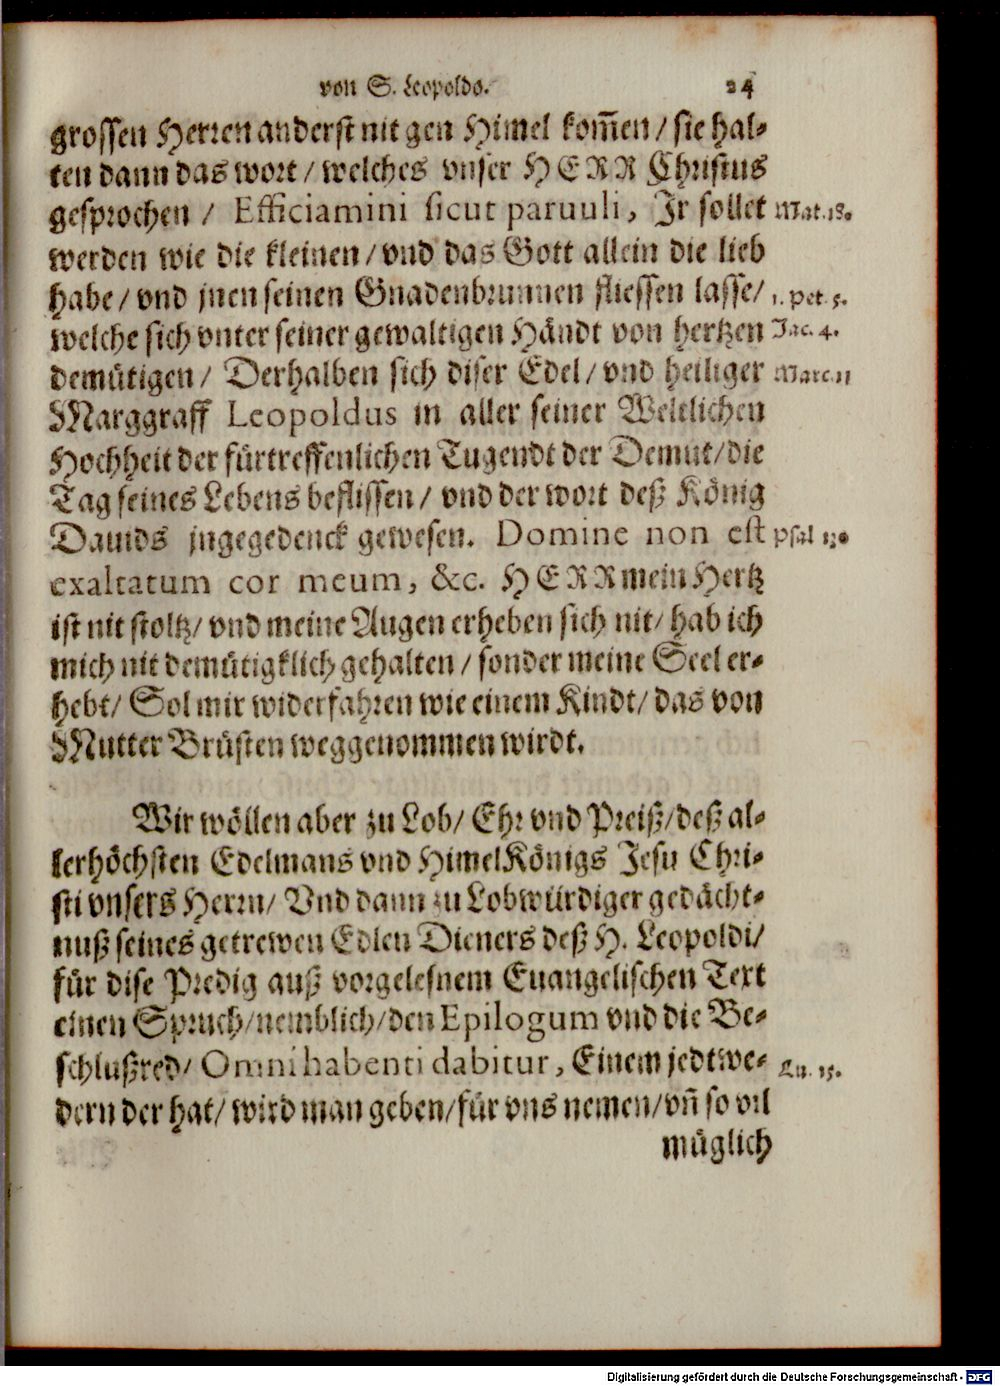 von S. Leopoldo. 24
grossen Herren anderst nit gen Himel kom̃en / sie hal-
ten dann das wort / welches vnser HERR Christus
gesprochen / Efficiamini sicut paruuli, Ir sollet Mat. 18.
werden wie die kleinen / vnd das Gott allein die lieb
habe / vnd jnen seinen Gnadenbrunnen fliessen lasse / 1. Pet. 5.
welche sich vnter seiner gewaltigen Händt von hertzen Jac. 4.
demütigen / Derhalben sich diser Edel / vnd heiliger Marc. 11
Marggraff Leopoldus in aller seiner Weltlichen
Hochheit der fürtreffenlichen Tugendt der Demut / die
Tag seines Lebens beflissen / vnd der wort deß König
Dauids jngegedenck gewesen. Domine non est Psal 130
exaltatum cor meum, &c. HERR mein Hertz
ist nit stoltz / vnd meine Augen erheben sich nit / hab ich
mich nit demütigklich gehalten / sonder meine Seel er-
hebt / Sol mir widerfahren wie einem Kindt / das von
Mutter Brüsten weggenommen wirdt.
Wir wöllen aber zu Lob / Ehr vnd Preiß / deß al-
lerhöchsten Edelmans vnd HimelKönigs Jesu Chri-
sti vnsers Herrn / Vnd dann zu Lobwürdiger gedächt-
nuß seines getrewen Edlen Dieners deß H. Leopoldi /
für dise Predig auß vorgelesnem Euangelischen Text
einen Spruch / nemblich / den Epilogum vnd die Be-
schlußred / Omni habenti dabitur, Einem jedtwe- Lu. 19.
dern der hat / wird man geben / für vns nemen / vñ so vil
müglich
Digitalisierung gefördert durch die Deutsche Forschungsgemeinschaft - DFG